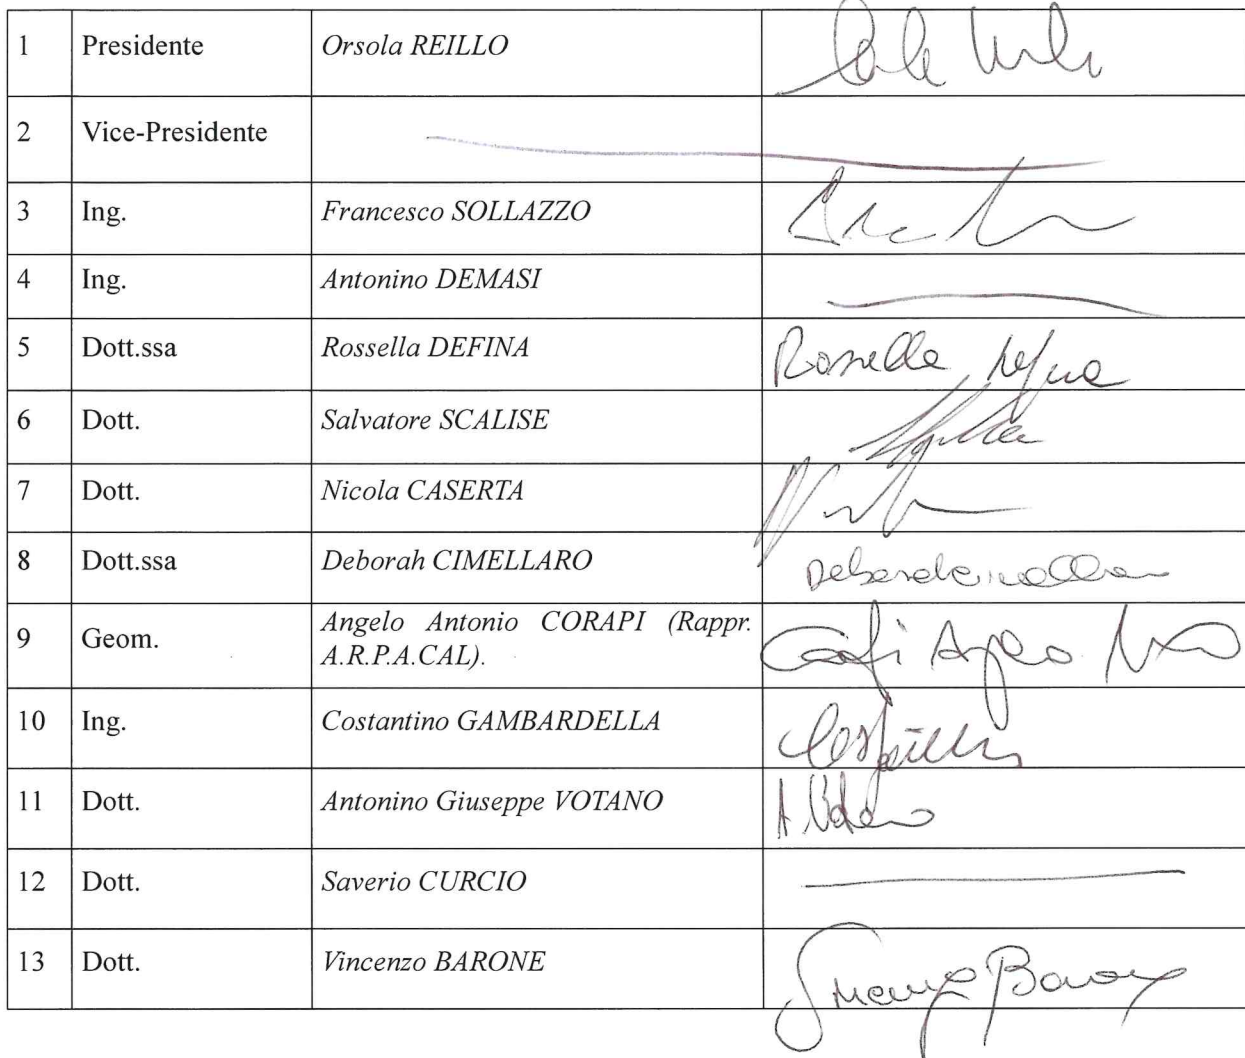 1 Presidente Orsola REILLO
2 Vice-Presidente
3 Ing. Francesco SOLLAZZO
4 Ing. Antonino DEMASI
5 Dott.ssa Rossella DEFINA Rossella Defina
6 Dott. Salvatore SCALISE
7 Dott. Nicola CASERTA
8 Dott.ssa Deborah CIMELLARO
9 Geom. Angelo Antonio CORAPI (Rappr.
A.R.P.A.CAL).
10 Ing. Costantino GAMBARDELLA
11 Dott. Antonino Giuseppe VOTANO
12 Dott. Saverio CURCIO
13 Dott. Vincenzo BARONE Vincenzo Barone